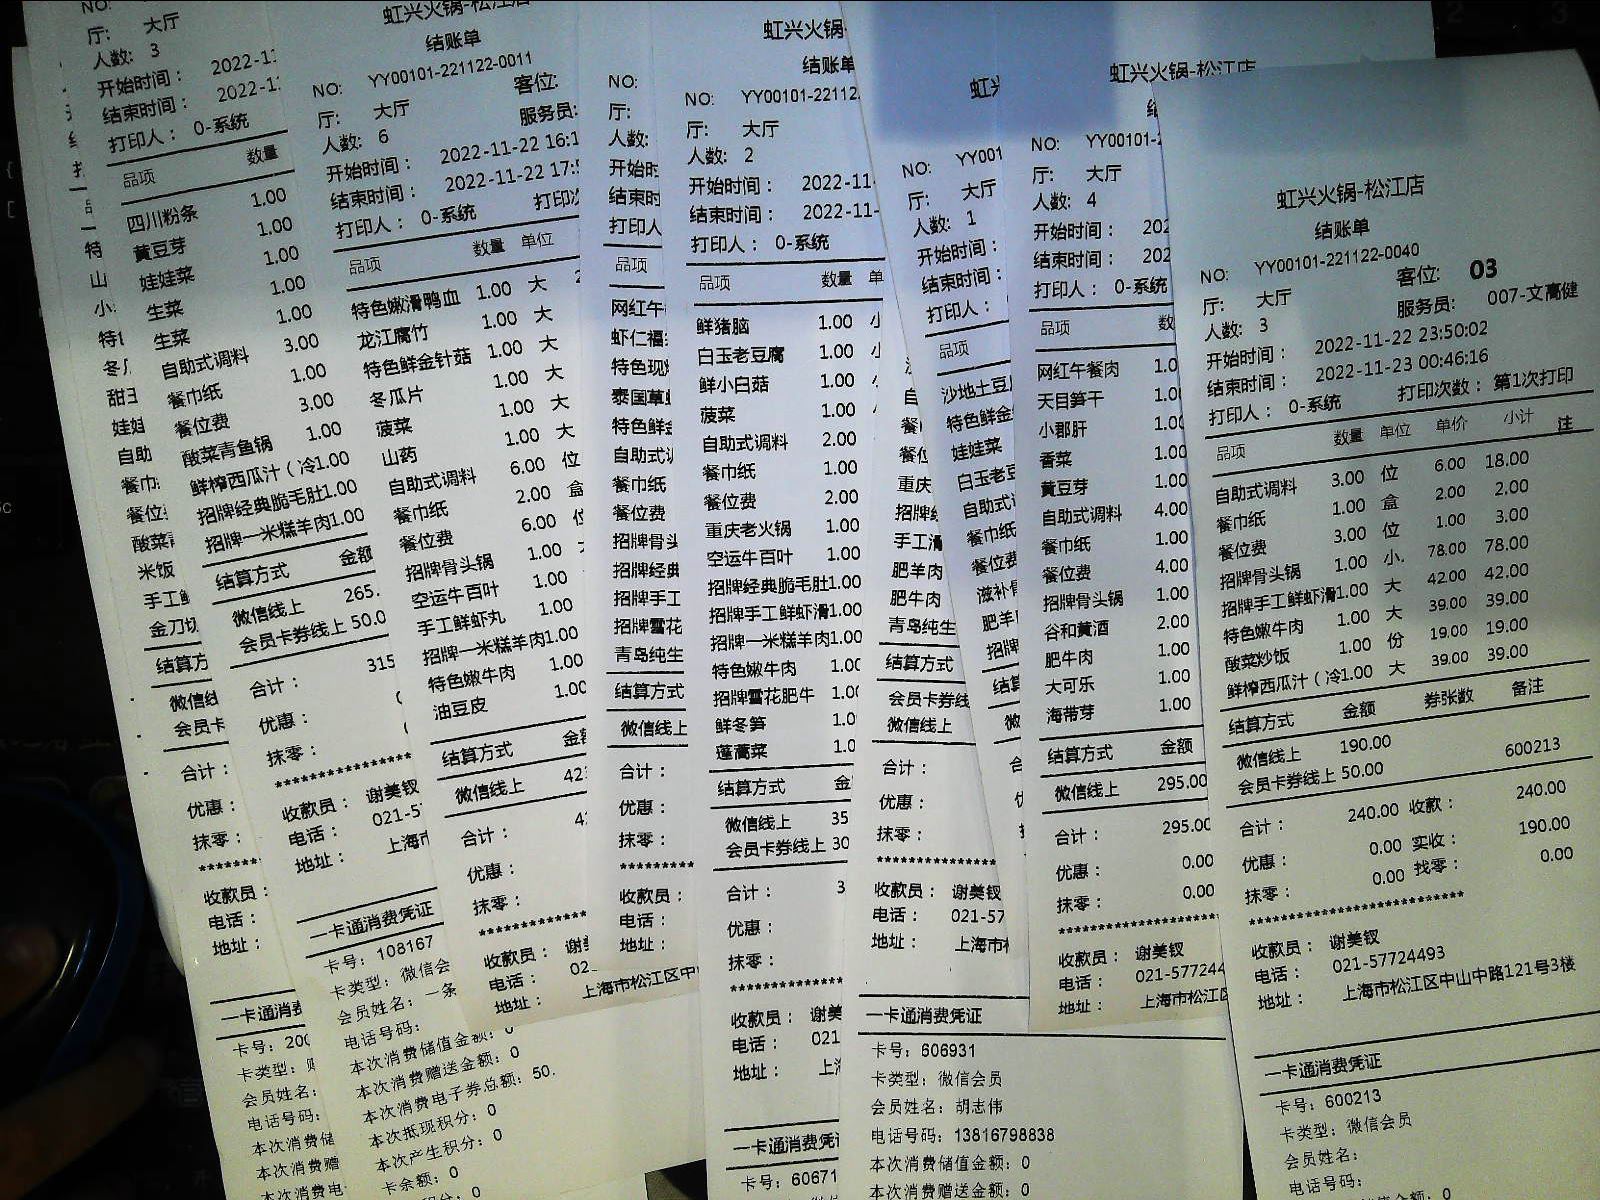 NO:
厅: 大厅
人数: 3
开始时间: 2022-11
结束时间: 2022-1
打印人: 0-系统
品项 数量
四川粉条 1.00
黄豆芽 1.00
娃娃菜 1.00
生菜 1.00
生菜 1.00
自助式调料 3.00
餐巾纸 1.00
餐位费 3.00
酸菜青鱼锅 1.00
鲜榨西瓜汁(冷1.00
招牌经典脆毛肚1.00
招牌一米糕羊肉1.00
结算方式 金额
微信线上 265.
会员卡券线上 50.0
合计: 315
优惠:
抹零:
收款员: 谢美钗
电话: 021-5
地址: 上海市
一卡通消费凭证
卡号: 108167
卡类型: 微信会
会员姓名: 一条
电话号码:
本次消费储值金额: 0
本次消费赠送金额: 0
本次消费电子券总额: 50.
本次抵现积分: 0
本次产生积分: 0
卡余额: 0
特
山
小
冬
娃娃
自助
餐巾
餐位
酸菜
米饭
手工
金刀切
结算方
微信线
会员卡
合计:
优惠:
抹零:
收款员:
电话:
地址:
一卡通消费
卡号: 200
卡类型:
会员姓名:
电话号码:
本次消费储
本次消费赠
本次消费电
虹兴火锅-松江店
结账单
NO: YY00101-221122-0011
厅: 大厅 客位:
人数: 6 服务员:
开始时间: 2022-11-22 16:1
结束时间: 2022-11-22 17:5
打印人: 0-系统 打印次
品项 数量 单位
特色嫩滑鸭血 1.00 大
龙江腐竹 1.00 大
特色鲜金针菇 1.00 大
冬瓜片 1.00 大
菠菜 1.00 大
山药 1.00 大
自助式调料 6.00 位
餐巾纸 2.00 盒
餐位费 6.00 位
招牌骨头锅 1.00
空运牛百叶 1.00
手工鲜虾丸 1.00
招牌一米糕羊肉1.00
特色嫩牛肉 1.00
油豆皮 1.00
结算方式 金额
微信线上 42
合计: 4
优惠:
抹零:
收款员: 谢美
电话: 02
地址: 上海市松江区中
NO:
厅:
人数:
开始时
结束时
打印人
品项
网红午
虾仁福
特色现
泰国草
特色鲜金
自助式调
餐巾纸
餐位费
招牌骨头
招牌经典
招牌手工
招牌雪花
青岛纯生
结算方式
微信线上
合计:
优惠:
抹零:
收款员:
电话:
地址:
虹兴火锅-
结账单
NO: YY00101-22112
厅: 大厅
人数: 2
开始时间: 2022-11
结束时间: 2022-11-
打印人: 0-系统
品项 数量 单
鲜猪脑 1.00 小
白玉老豆腐 1.00 小
鲜小白菇 1.00
菠菜 1.00
自助式调料 2.00
餐巾纸 1.00
餐位费 2.00
重庆老火锅 1.00
空运牛百叶 1.00
招牌经典脆毛肚1.00
招牌手工鲜虾滑1.00
招牌一米糕羊肉1.00
特色嫩牛肉 1.00
招牌雪花肥牛 1.00
鲜冬笋 1.0
蓬蒿菜 1.0
结算方式 金
微信线上 35
会员卡券线上 30
合计: 3
优惠:
抹零:
收款员: 谢美
电话: 021
地址: 上
一卡通消费凭证
卡号: 60671
自
餐
餐位
重庆
招牌
手工滑
肥羊肉
肥牛肉
青岛纯生
结算方式
会员卡券线
微信线上
合计:
优惠:
抹零:
收款员: 谢美钗
电话: 021-57
地址: 上海市松
一卡通消费凭证
卡号: 606931
卡类型: 微信会员
会员姓名: 胡志伟
电话号码: 13816798838
本次消费储值金额: 0
本次消费赠送金额: 0
虹兴
NO: YY001
厅: 大厅
人数: 1
开始时间:
结束时间:
打印人:
品项
沙地土豆
特色鲜金
娃娃菜
白玉老豆
自助式
餐巾纸
餐位费
滋补骨
肥羊
招牌
结算
微
虹兴火锅-松江店
NO: YY00101-2
厅: 大厅
人数: 4
开始时间: 202
结束时间: 202
打印人: 0-系统
品项 数
网红午餐肉 1.0
天目笋干 1.0
小郡肝 1.00
香菜 1.00
黄豆芽 1.00
自助式调料 4.00
餐巾纸 1.00
餐位费 4.00
招牌骨头锅 1.00
谷和黄酒 2.00
肥牛肉 1.00
大可乐 1.00
海带芽 1.00
结算方式 金额
微信线上 295.00
合计: 295.00
优惠: 0.00
抹零: 0.00
收款员: 谢美钗
电话: 021-577244
地址: 上海市松江区
虹兴火锅-松江店
结账单
NO: YY00101-221122-0040
厅: 大厅 客位: 03
人数: 3 服务员: 007-文高健
开始时间: 2022-11-22 23:50:02
结束时间: 2022-11-23 00:46:16
打印人: 0-系统 打印次数: 第1次打印
品项 数量 单位 单价 小计 注
自助式调料 3.00 位 6.00 18.00
餐巾纸 1.00 盒 2.00 2.00
餐位费 3.00 位 1.00 3.00
招牌骨头锅 1.00 小. 78.00 78.00
招牌手工鲜虾滑1.00 大 42.00 42.00
特色嫩牛肉 1.00 大 39.00 39.00
酸菜炒饭 1.00 份 19.00 19.00
鲜榨西瓜汁(冷1.00 大 39.00 39.00
结算方式 金额 券张数 备注
微信线上 190.00
会员卡券线上 50.00 600213
合计: 240.00 收款: 240.00
优惠: 0.00 实收: 190.00
抹零: 0.00 找零: 0.00
收款员: 谢美钗
电话: 021-57724493
地址: 上海市松江区中山中路121号3楼
一卡通消费凭证
卡号: 600213
卡类型: 微信会员
会员姓名:
电话号码:
本次消费储值金额: 0